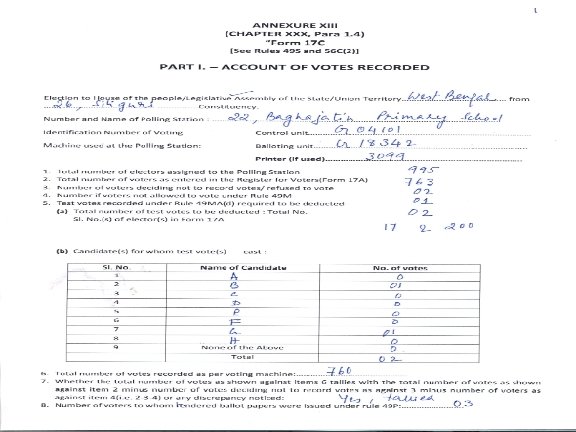 1
ANNEXURE XIII
(CHAPTER XXX, Para 1.4)
"Form 17C
[See Rules 49S and 56C(2)]
PART I. – ACCOUNT OF VOTES RECORDED
Election to House of the people/Legislative Assembly of the State/Union Territory West Bengal from
26, Siliguri Constituency.
Number and Name of Polling Station : 22, Baghajatin Primary School
Identification Number of Voting Control unit G 04101
Machine used at the Polling Station: Balloting unit 18342
Printer (if used) 3099
1. Total number of electors assigned to the Polling Station 995
2. Total number of voters as entered in the Register for Voters(Form 17A) 763
3. Number of voters deciding not to record votes/ refused to vote 02
4. Number if voters not allowed to vote under Rule 49M 01
5. Test votes recorded under Rule 49MA(d) required to be deducted
(a) Total number of test votes to be deducted : Total No. 02
Sl. No.(s) of elector(s) in Form 17A 17 2 200
(b) Candidate(s) for whom test vote(s) cast :
Sl. No. Name of Candidate No. of votes
1 A 0
2 B 01
3 C 0
4 D 0
5 P 0
6 F 0
7 G 01
8 H 0
9 None of the Above 0
Total 02
6. Total number of votes recorded as per voting machine: 760
7. Whether the total number of votes as shown against items 6 tallies with the total number of votes as shown
against item 2 minus number of votes deciding not to record votes as against 3 minus number of voters as
against item 4(i.e. 2-3-4) or any discrepancy noticed: Yes, tallied
8. Number of voters to whom tendered ballot papers were issued under rule 49P: 03